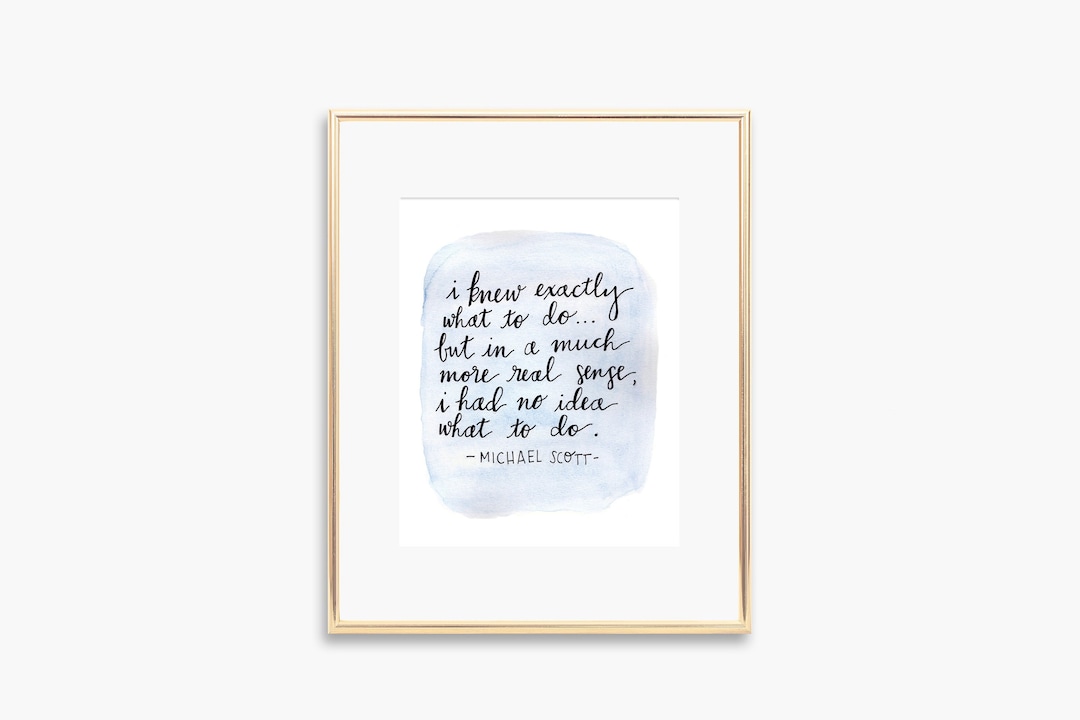 i knew exactly
what to do...
but in a much
more real sense,
i had no idea
what to do.
-MICHAEL SCOTT-